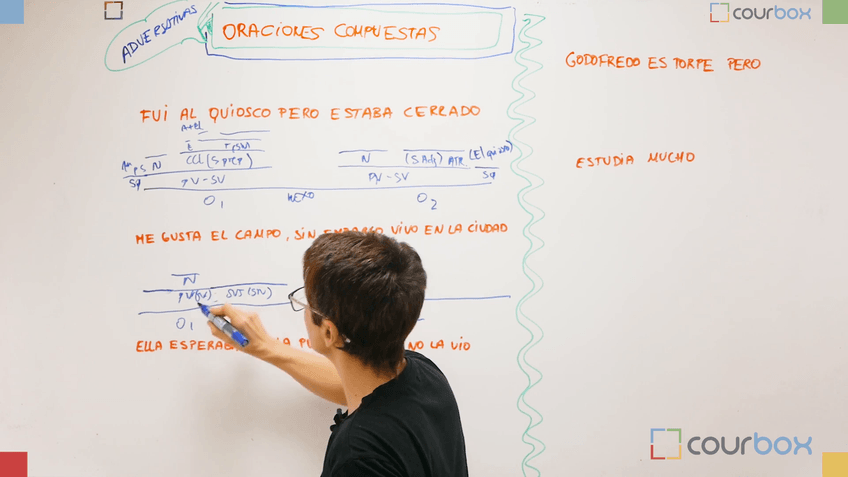 ADVERSATIVAS
ORACIONES COMPUESTAS
FUI AL QUIOSCO PERO ESTABA CERRADO
A+EL
E
N
CCL (S PREP)
PV-SV
O1
NEXO
N
(S Adj) ATR.
PV-SV
O2
ME GUSTA EL CAMPO, SIN EMBARGO VIVO EN LA CIUDAD
N
PV(SV)
SUJ (SN)
O1
ELLA NO LA VIO
GODOFREDO ES TORPE PERO
ESTUDIA MUCHO
courbox
courbox